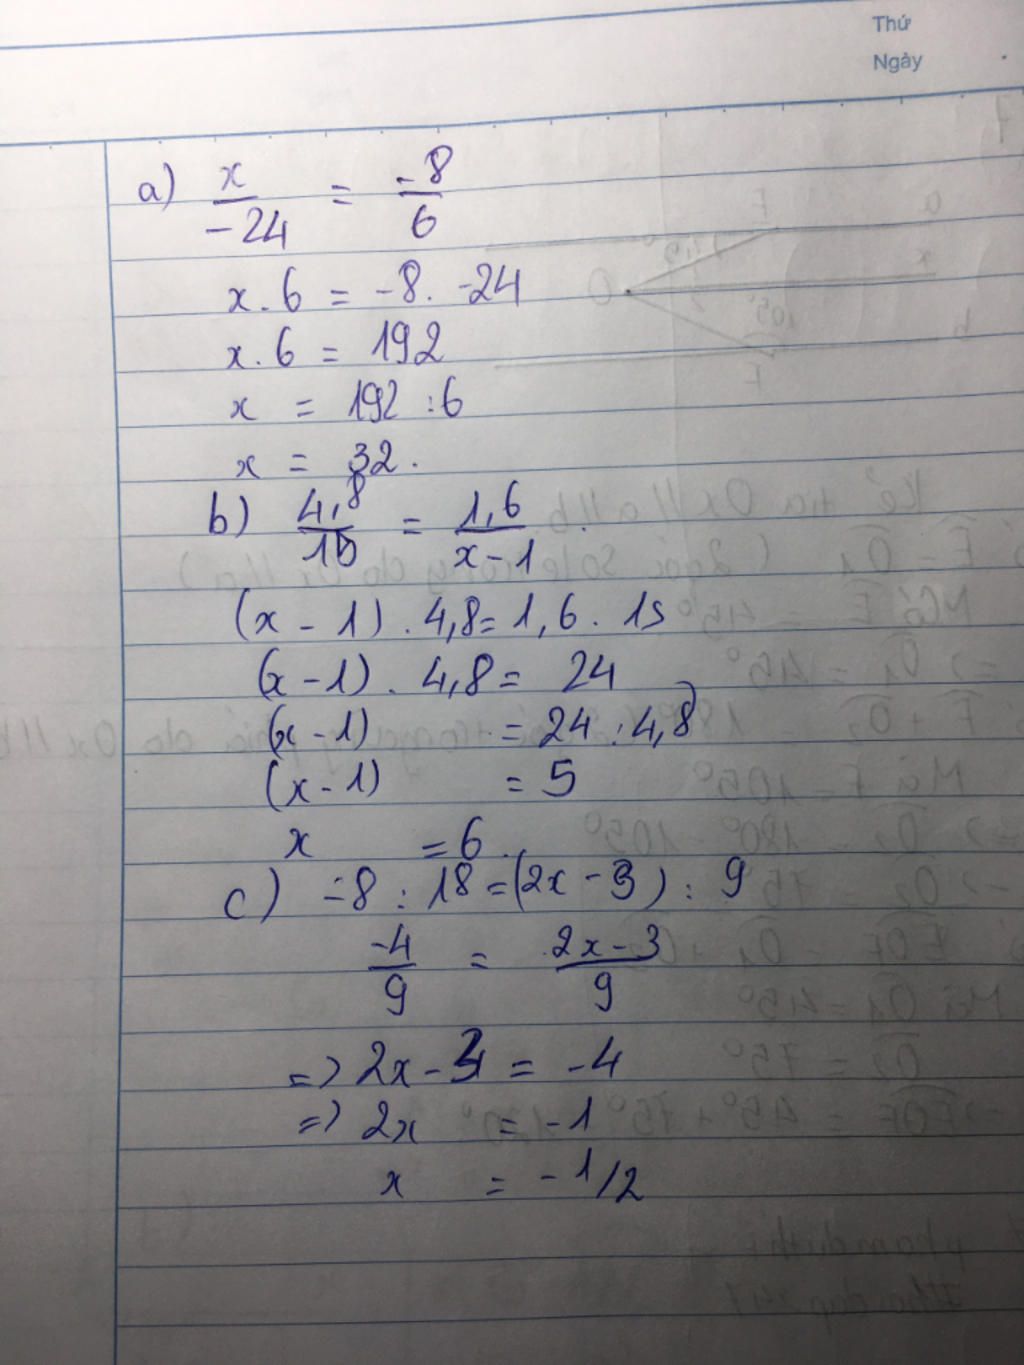 Thứ
Ngày
a) x/-24 = -8/6
x . 6 = -8 . -24
x . 6 = 192
x = 192 : 6
x = 32.
b) 4,8/15 = 1,6/x-1
(x - 1) . 4,8 = 1,6 . 15
(x - 1) . 4,8 = 24
(x - 1) = 24 : 4,8
(x - 1) = 5
x = 6.
c) -8 : 18 = (2x - 3) : 9
-4/9 = 2x-3/9
=> 2x - 3 = -4
=> 2x = -1
x = -1/2